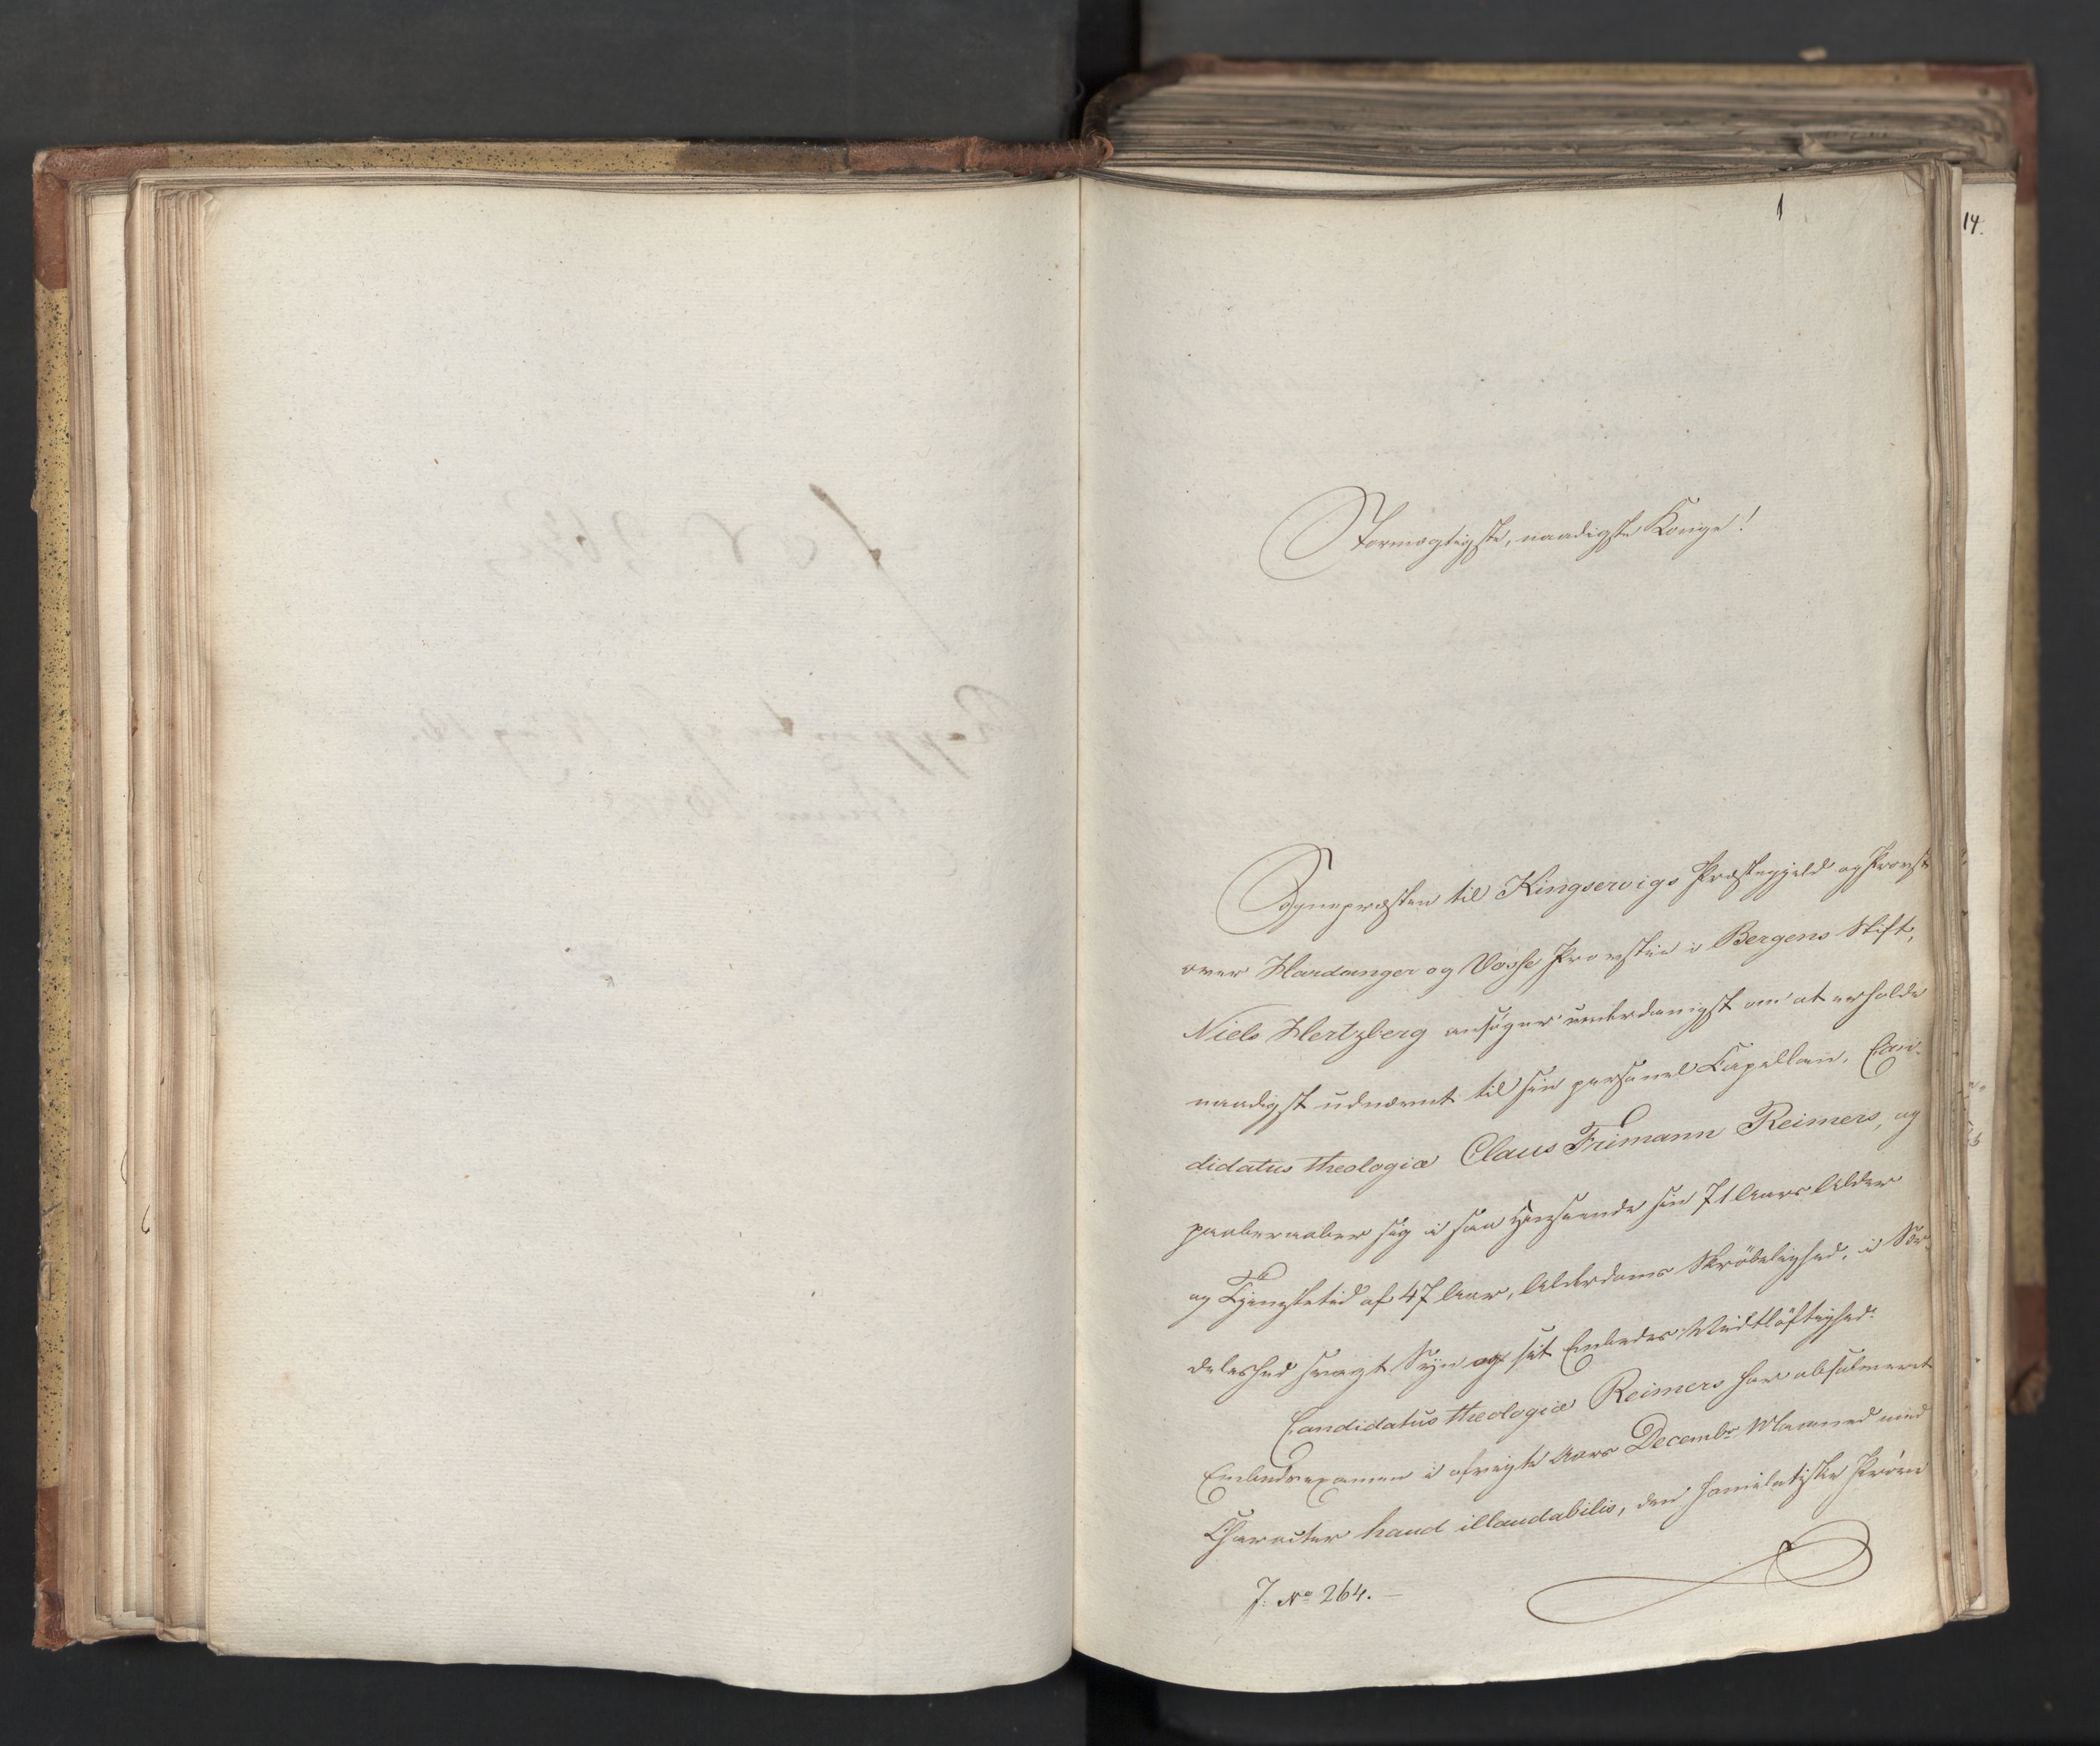 1
14.
Stormægtigste, naadigste Konge!
Sognepræsten til Kingservigs Præstegjeld og Provst
over Hardanger og Vosse Provstie i Bergens Stift,
Niels Hertzberg ansøger underdanigst om at erholde
naadigst udnævnt til sin personel Capellan, Can-
didatus theologiæ Claus Frimann Reimers, og
paaberaaber sig i saa Henseende sin 71 Aars Alder
og Tjenestetid af 47 Aar, Alderdoms Skrøbelighed, i Sær-
deleshed svagt Syn og sit Embedes Vidtløftighed.
Candidatus theologiæ Reimers har absolveret
Embedsexamen i afvigte Aars Decembr Maaned med
Character haud illaudabilis, den homiletiske Prøve
J. No 264. –